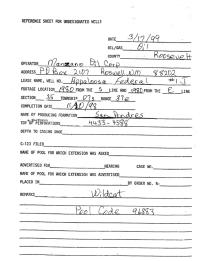 REFERENCE SHEET FOR UNDESIGNATED WELLS
DATE 3/17/99
OIL/GAS Oil
COUNTY Roosevelt
OPERATOR Manzano Oil Corp
ADDRESS PO Box 2107 Roswell NM 88202
LEASE NAME, WELL NO. Appaloosa Federal #1 J
FOOTAGE LOCATION 1980 FROM THE S LINE AND 1980 FROM THE E LINE
SECTION 35 TOWNSHIP 07s RANGE 37e
COMPLETION DATE
NAME OF PRODUCING FORMATION San Andres
TOP OF PERFORATIONS 4433-4588
DEPTH TO CASING SHOE
C-123 FILED
NAME OF POOL FOR WHICH EXTENSION WAS ASKED
ADVERTISED FOR HEARING CASE NO.
NAME OF POOL FOR WHICH EXTENSION WAS ADVERTISED
PLACED IN BY ORDER NO. R-
REMARKS Wildcat
Pool Code 96883